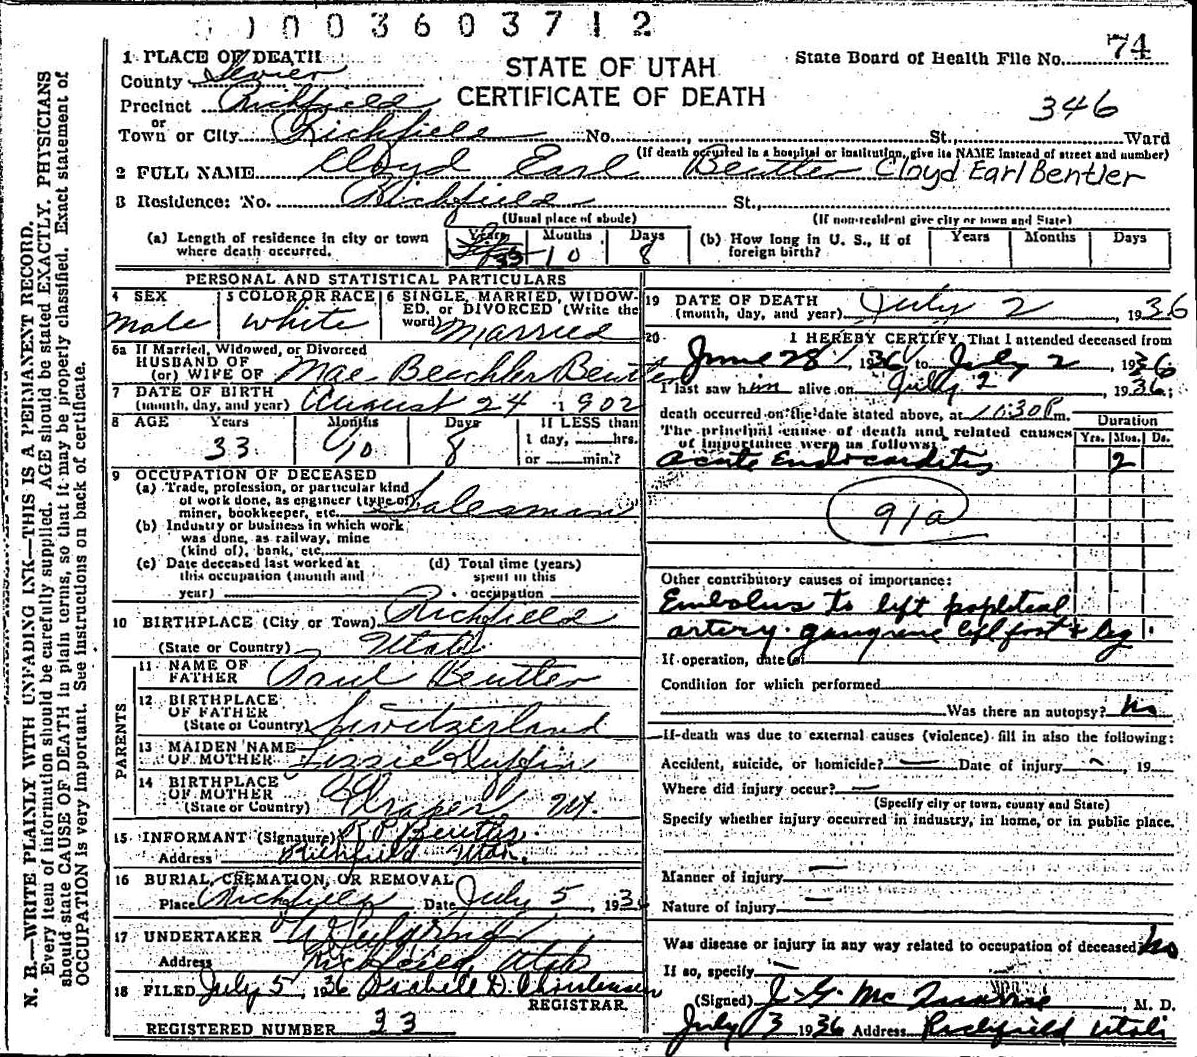 0003603712
1 PLACE OF DEATH
County Sevier
STATE OF UTAH
CERTIFICATE OF DEATH
State Board of Health File No. 74
346
Precinct Richfield
or
Town or City Richfield No. , St., Ward
(If death occurred in a hospital or institution, give its NAME instead of street and number)
2 FULL NAME Cloyd Earl Beutler Cloyd Earl Bentler
3 Residence: No. Richfield St.,
(Usual place of abode) (If non-resident give city or town and State)
(a) Length of residence in city or town where death occurred. Years 33 Months 10 Days 8
(b) How long in U. S., if of foreign birth? Years Months Days
PERSONAL AND STATISTICAL PARTICULARS
4 SEX
Male
5 COLOR OR RACE
White
6 SINGLE, MARRIED, WIDOW-
ED, or DIVORCED (Write the
word) Married
6a If Married, Widowed, or Divorced
HUSBAND OF
(or) WIFE OF Mae Beechler Beutler
7 DATE OF BIRTH
(month, day, and year) August 24 1902
8 AGE Years Months Days If LESS than
33 10 8 1 day, hrs.
or min.?
9 OCCUPATION OF DECEASED
(a) Trade, profession, or particular kind
of work done, as engineer (type of)
miner, bookkeeper, etc. Salesman
(b) Industry or business in which work
was done, as railway, mine
(kind of), bank, etc.
(c) Date deceased last worked at
this occupation (month and
year)
(d) Total time (years)
spent in this
occupation
10 BIRTHPLACE (City or Town) Richfield
(State or Country) Utah
PARENTS
11 NAME OF
FATHER Paul Beutler
12 BIRTHPLACE
OF FATHER
(State or Country) Switzerland
13 MAIDEN NAME
OF MOTHER Lizzie
14 BIRTHPLACE
OF MOTHER
(State or Country) Draper Ut.
15 INFORMANT (Signature) Beutler
Address Richfield Utah.
16 BURIAL, CREMATION, OR REMOVAL
Place Richfield Date July 5, 193
17 UNDERTAKER
Address Richfield, Utah
18 FILED July 5, 1936 Isabell D. Christensen
REGISTRAR.
REGISTERED NUMBER 33
19 DATE OF DEATH
(month, day, and year) July 2, 1936
20 I HEREBY CERTIFY, That I attended deceased from
June 28, 1936 to July 2, 1936
I last saw him alive on July 2, 1936;
death occurred on the date stated above, at 10:30 P.m.
The principal cause of death and related causes
of importance were as follows:
Duration
Yrs. Mos. Ds.
Acute Endocarditis 2
91a
Other contributory causes of importance:
Embolus to left popliteal
artery. gangrene left foot & leg.
If operation, date of
Condition for which performed
Was there an autopsy? No
If death was due to external causes (violence) fill in also the following:
Accident, suicide, or homicide? — Date of injury , 19
Where did injury occur? —
(Specify city or town, county and State)
Specify whether injury occurred in industry, in home, or in public place.
Manner of injury —
Nature of injury —
Was disease or injury in any way related to occupation of deceased? No
If so, specify —
(Signed) J. G. Mc M. D.
July 3 1936 Address Richfield Utah
N. B.—WRITE PLAINLY WITH UNFADING INK—THIS IS A PERMANENT RECORD.
Every item of information should be carefully supplied. AGE should be stated EXACTLY. PHYSICIANS
should state CAUSE OF DEATH in plain terms, so that it may be properly classified. Exact statement of
OCCUPATION is very important. See instructions on back of certificate.